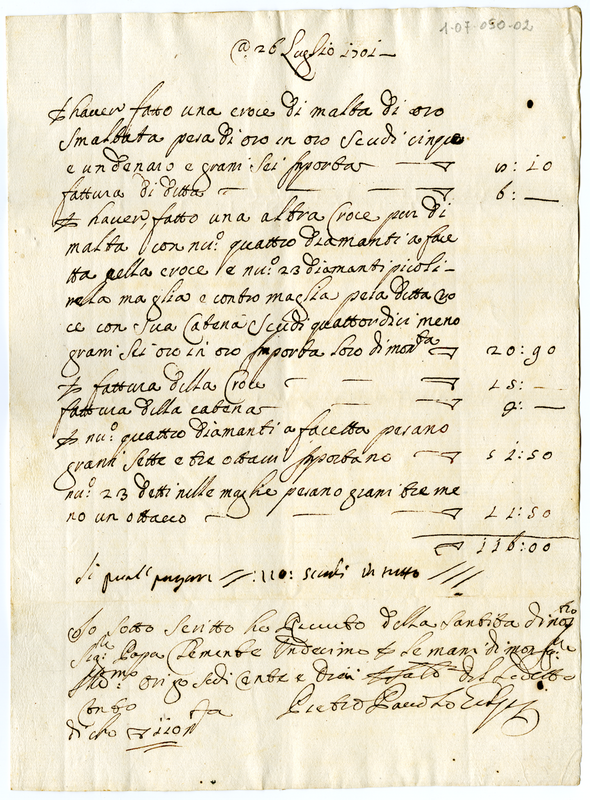 1-07-050-02
@ 26 Luglio 1701
P haver fatto una croce di malta di oro
smaltata pesa di oro in oro scudi cinque
e un denaro e grani sei importa 10
fattura di detta 6:
P haver fatto una altra Croce pur di
malta con nu.o quattro diamanti a face
tta nella croce e nu.o 23 diamanti picoli
nella maglia e contro maglia pesa detta cro
ce con sua Catena scudi quattordici meno
grani sei oro in oro importa loro 20:90
P fattura della Croce 15:
fattura della catena 9:
P nu.o quattro diamanti a facetta pesano
granni sette e tre ottavi importano 51:50
nu.o 23 detti nelle maglie pesano grani tre me
no un ottavo 11:50
116:00
110: scudi in tutto
Io sotto scritto ho riceuto della Santita di no
Sig.re Papa Clemente Undecimo P le mani di
cento e dieci saldo del
conto
di
Pietro Paolo